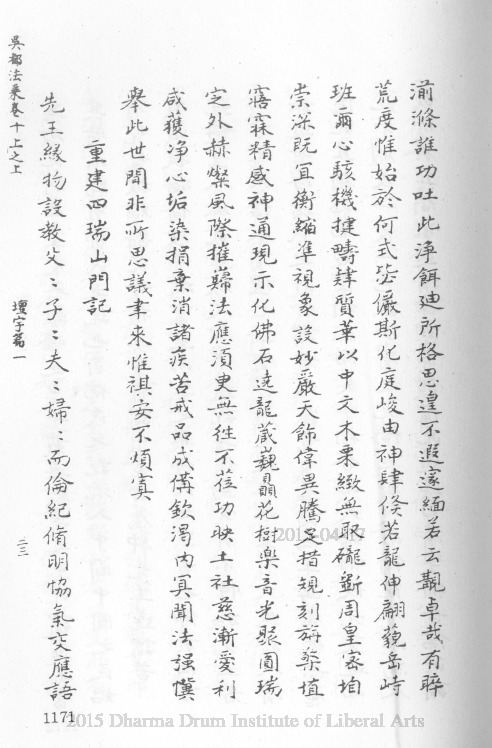 湔滌誰功吐此淨餌廸所格思遑不遐遂緬若云覿卓哉有晬
荒度惟始於何式毖儼斯化庭峻由神肆倐若龍伸翩藐岳峙
班爾心駭機揵疇肄質華以中文木栗緻無取礲斲周皇客垍
崇深既宜衡縮準視象設妙嚴天飾偉異騰足措規刻旃藥埴
寤寐精感神通現示化佛石遶龍蔵巍贔花樹樂音光聚圓瑞
定外赫燦風際摧歸法應須更無徃不莅功映土社慈漸愛利
咸獲净心垢染捐棄消諸疾苦戒品成僃欽渴內冥聞法强慎
舉此世間非所思議聿來惟祺安不煩寘
重建四瑞山門記
先王緣物設教父〻子〻夫〻婦〻而倫紀脩明恊氣交應語
吳都法乘卷十上之上
壇宇篇一
二三
1171
2015-04-17
2015 Dharma Drum Institute of Liberal Arts